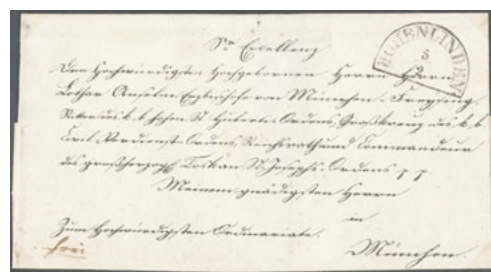 HOHENLINDEN
5
2
Sr Excellenz
Dem Hochwürdigsten Hochgebornen Herrn Herrn
Lothar Anselm Erzbischofe von München-Freysing,
Ritter des k. b. hohen St Huberts-Ordens, Großkreuz des k. b.
Civil-Verdienst-Ordens, Reichsrath und Commandeur
des großherzogl. Toskan. St. Josephs-Ordens p p
Meinem gnädigsten Herrn
in
Zum Hochwürdigsten Ordinariate.
frei
München.